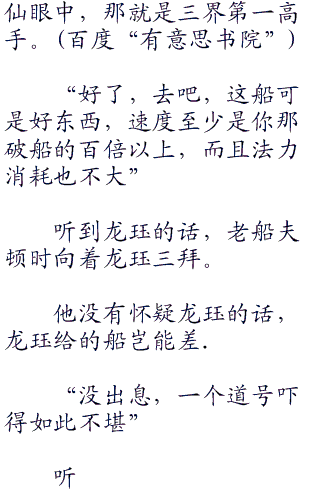 仙眼中，那就是三界第一高
手。(百度“有意思书院”)
“好了，去吧，这船可
是好东西，速度至少是你那
破船的百倍以上，而且法力
消耗也不大”
听到龙珏的话，老船夫
顿时向着龙珏三拜。
他没有怀疑龙珏的话，
龙珏给的船岂能差.
“没出息，一个道号吓
得如此不堪”
听